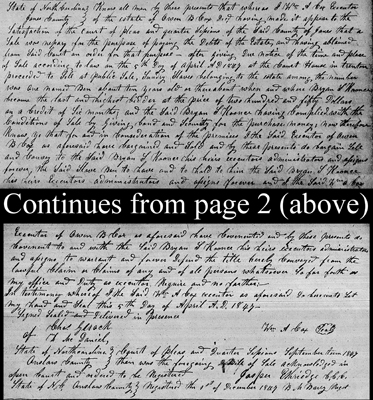 State of North Carolina Know all men by these presents that whereas I Wm A Cox Executor
Jones County of the estate of Owen B Cox did having made it appear to the
Satisfaction of the court of pleas and quarter Sessions of the said County of Jones that a
Sale was necessary for the purpose of paying the debts of the Estate, and having obtained
from said Court an order for that purpose — after giving due notice of the time and place
of Sale according to law on the 5th day of April A.D. 1847 at the Court House in Trenton
proceeded to Sell at public Sale, Sundry Slaves belonging to the estate among the number
was one named Ben about ten years old or thereabout when and where Bryan F Havner
became the last and highest bidder at the price of two hundred and fifty Dollars
on a credit of Six months, and the said Bryan F Havner having complied with the
Conditions of Sale by giving bond and Security for the purchase money, now therefore
Know ye that for and in consideration of the premises I the said Executor of Owen
B Cox as aforesaid have bargained and Sold and by these presents do bargain Sell
and Convey to the said Bryan F Havner his heirs executors administrators and assigns
forever, the said Slave Ben to have and to hold to him the said Bryan F Havner
his heirs Executors administrators and assigns forever and I the said Wm A Cox
Continues from page 2 (above)
Executor of Owen B Cox as aforesaid have Covenanted and by these presents do
Covenant to and with the said Bryan F Havner his heirs executors administrators
and assigns to warrant and forever defend the title hereby Conveyed from the
lawful Claim or Claims of any and all persons whatsoever So far forth as
my office and duty as executor, require and no farther.
In testimony whereof I the said Wm A Cox executor as aforesaid do hereunto Set
my hand and Seal this 5th day of April A.D. 1847.
Signed Sealed and delivered in presence
of Chas Gerock Wm A Cox Seal
J McDaniel,
State of North Carolina Court of Pleas and Quarter Sessions September term 1847
Onslow County then was the foregoing Bill of Sale acknowledged in
open Court and ordered to be Registered Jasper Etheridge Clk
State of N.C. Onslow County Registered the 1st of December 1847